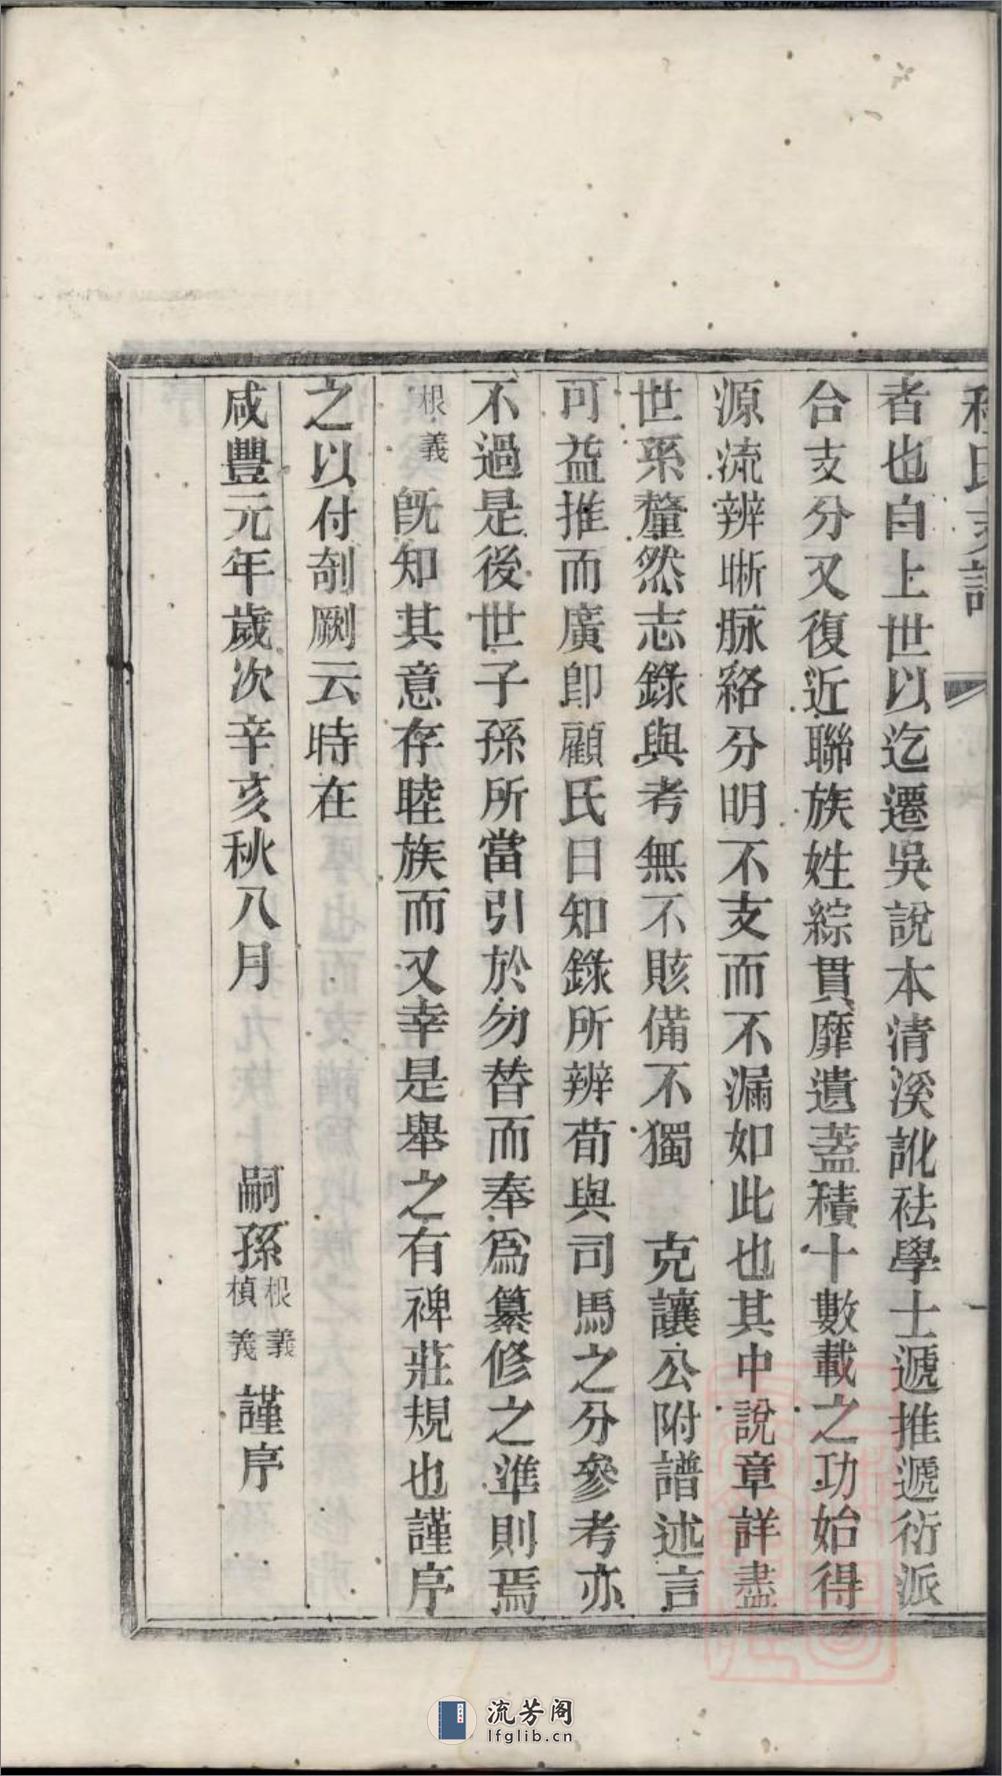 程氏支譜
者也自上世以迄遷吳說本清溪訛祛學士遞推遞衍派
合支分又復近聯族姓綜貫靡遺蓋積十數載之功始得
源流辨晰脉絡分明不支而不漏如此也其中說章詳盡
世系釐然志錄與考無不賅備不獨　克讓公附譜述言
可益推而廣即顧氏日知錄所辨荀與司馬之分參考亦
不過是後世子孫所當引於勿替而奉為纂修之準則焉
根義既知其意存睦族而又幸是舉之有裨莊規也謹序
之以付剞劂云時在
咸豐元年歲次辛亥秋八月　嗣孫根義楨義謹序
流芳阁
lfglib.cn